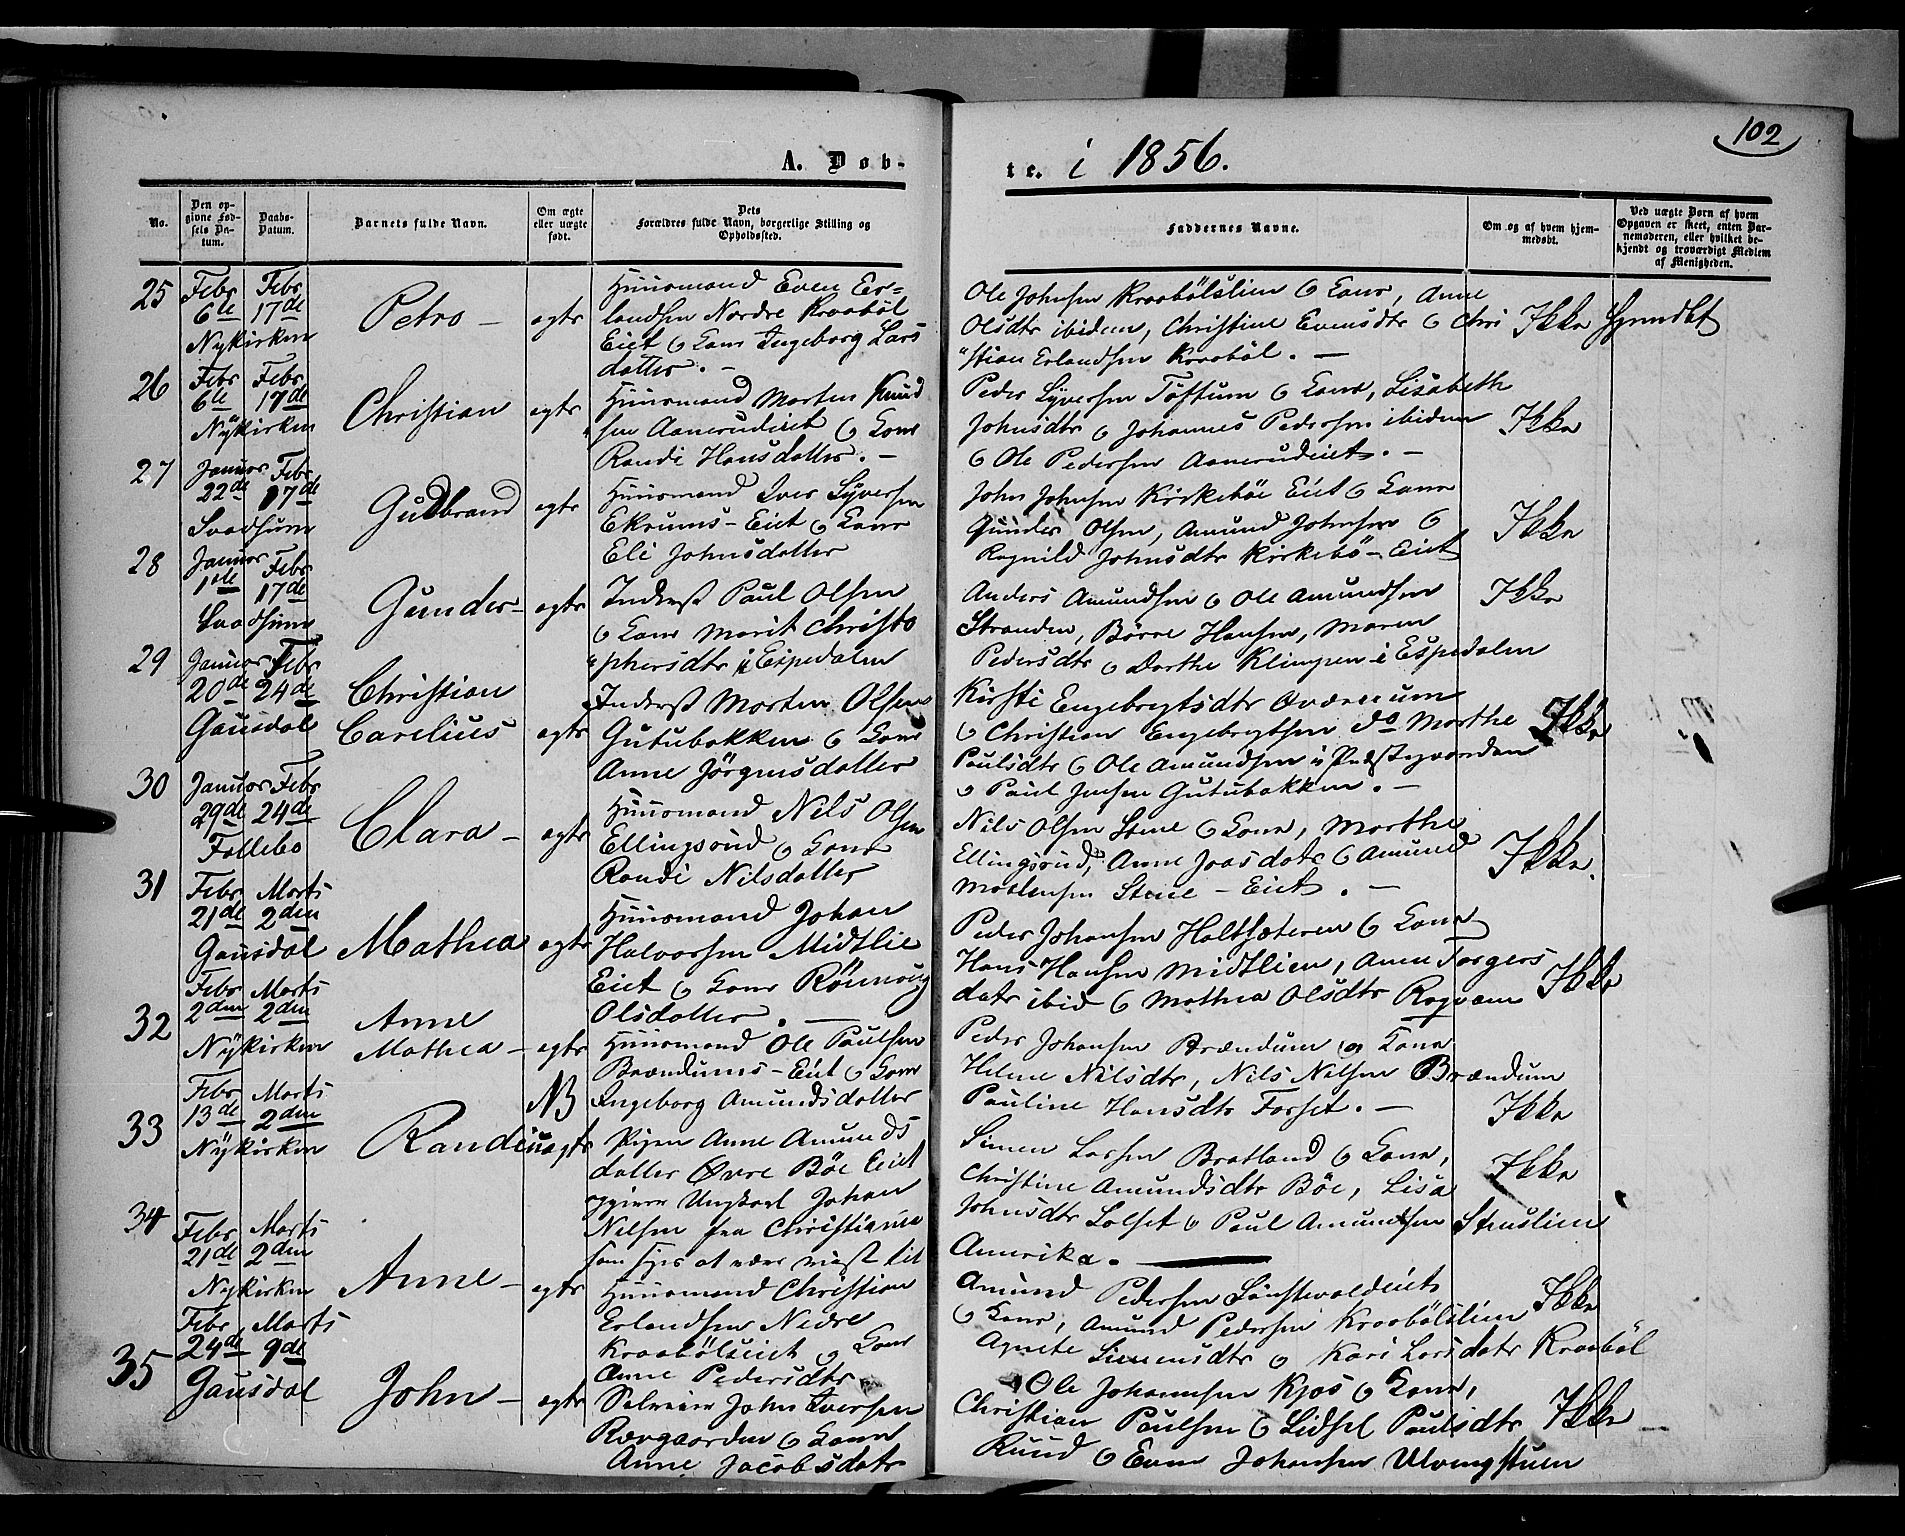 102
A. Døb-
te. i 1856.
No.
Den opgivne Fødsels Datum.
Daabs-Datum.
Barnets fulde Navn.
Om ægte eller uægte født.
Dets Forældres fulde Navn, borgerlige Stilling og Opholdssted.
Faddernes Navne.
Om og af hvem hjemmedøbt.
Ved uægte Børn af hvem Opgaven er skeet, enten Barnemoderen, eller hvilket bekjendt og troværdigt Medlem af Menigheden.
25
Febr 6te
Febr 17de
Nykirken
Petro -
egte
Huusmand Even Er=
landsen Nordre Kraabøl
Eiet & Kone Ingeborg Lars
datter. -
Ole Johnsen Kraabölslien & Kone, Anne
Olsdtr ibidem, Christine Evensdtr & Chri
"stian Erlandsen Kraabøl. -
Ikke
26
Febr 6te
Febr 17de
Nÿkirken
Christian
egte
Huusmand Morten Knud
"sen Aanerudeiet & Kone
Randi Hansdatter. -
Peder Syversen Toftum & Kone, Lisabeth
Johnsdtr & Johannes Pedersen ibidem
& Ole Pedersen Aanerudeiet. -
Ikke
27
Januar 22de
Febr 17de
Svadsum
Gudbrand
egte
Huusmand Iver Syversen
Ekrums-Eiet & Kone
Eli Johnsdatter
John Johnsen Kirkeböe Eiet & Kone
Gunder Olsen, Amund Johnsen &
Ragnild Johnsdtr Kirkebö-Eiet
Ikke
28
Januar 1ste
Febr 17de
Svadsum
Gunder -
egte
Inderst Paul Olsen
& Kone Marit Christo
"phersdtr i Espedalen
Anders Amundsen & Ole Amundsen
Stranden, Börre Hansen, Maren
Pedersdtr & Dorthe Klimpen i Espedalen
Ikke
29
Januar 20de
Febr 24de
Gausdal
Christian
Carelius
egte
Inderst Morten Olsen
Gutubakken & Kone
Anne Jörgensdatter
Kirsti Engebregtsdtr
& Christian Engebregtsen do Marthe
Paulsdtr & Ole Amundsen i Præstegaarden
& Paul Jensen Gutubakken. -
Ikke
30
Januar 29de
Febr 24de
Follebo
Clara -
egte
Huusmand Nils Olsen
Ellingsrud & Kone
Randi Nilsdatter
Nils Olsen Stene & Kone, Marthe
Ellingsrud, Anne Joasdatr & Amund
Mortensen Stene-Eiet. -
Ikke.
31
Febr 21de
Marts 2den
Gausdal
Mathea
egte
Huusmand Johan
Halvorsen Midtlie
Eiet & Kone Rönnoug
Olsdatter. -
Peder Johansen Holtsæteren & Kone
Hans Hansen Midtlien, Anne Torgers
datr ibid & Mathea Olsdtr
Ikke
32
Febr 2den
Marts 2den
Nÿkirken
Anne
Mathea -
egte
Huusmand Ole Paulsen
Brændums-Eiet & Kone
Ingeborg Amundsdatter
Peder Johansen Brændum & Kone
Helene Nilsdtr, Nils Nilsen Brændum
Pauline Hansdtr Forset. -
Ikke
33
Febr 13de
Marts 2den
Nÿkirken
Randi
NB
uægte
Pigen Anne Amunds
datter Øvre Böe Eiet
opgiver Ungkarl Johan
Nilsen fra Christiania
som siges at være reist til
Amerika.
Simen Larsen Bratland & Kone,
Christine Amundsdtr Böe, Lisa
Johnsdtr Lolset & Paul Amundsen Struslien
Ikke
34
Febr 21de
Marts 2den
Nykirken
Anne -
egte
Huusmand Christian
Erlandsen Nedre
Kraabölseiet & Kone
Anne Pedersdtr
Amund Pedersen
& Kone, Amund Pedersen Kraabölslien
Agnete Simensdtr & Kari Larsdatr Kraaböl
Ikke
35
Febr 24de
Marts 9de
Gausdal
John -
egte
Selveier John Iversen
Rævgaarden & Kone
Anne Jacobsdatr
Ole Johannesen Kjos & Kone,
Christian Paulsen & Lidsel Paulsdtr
Ruud & Even Johansen Ulvingstuen
Ikke